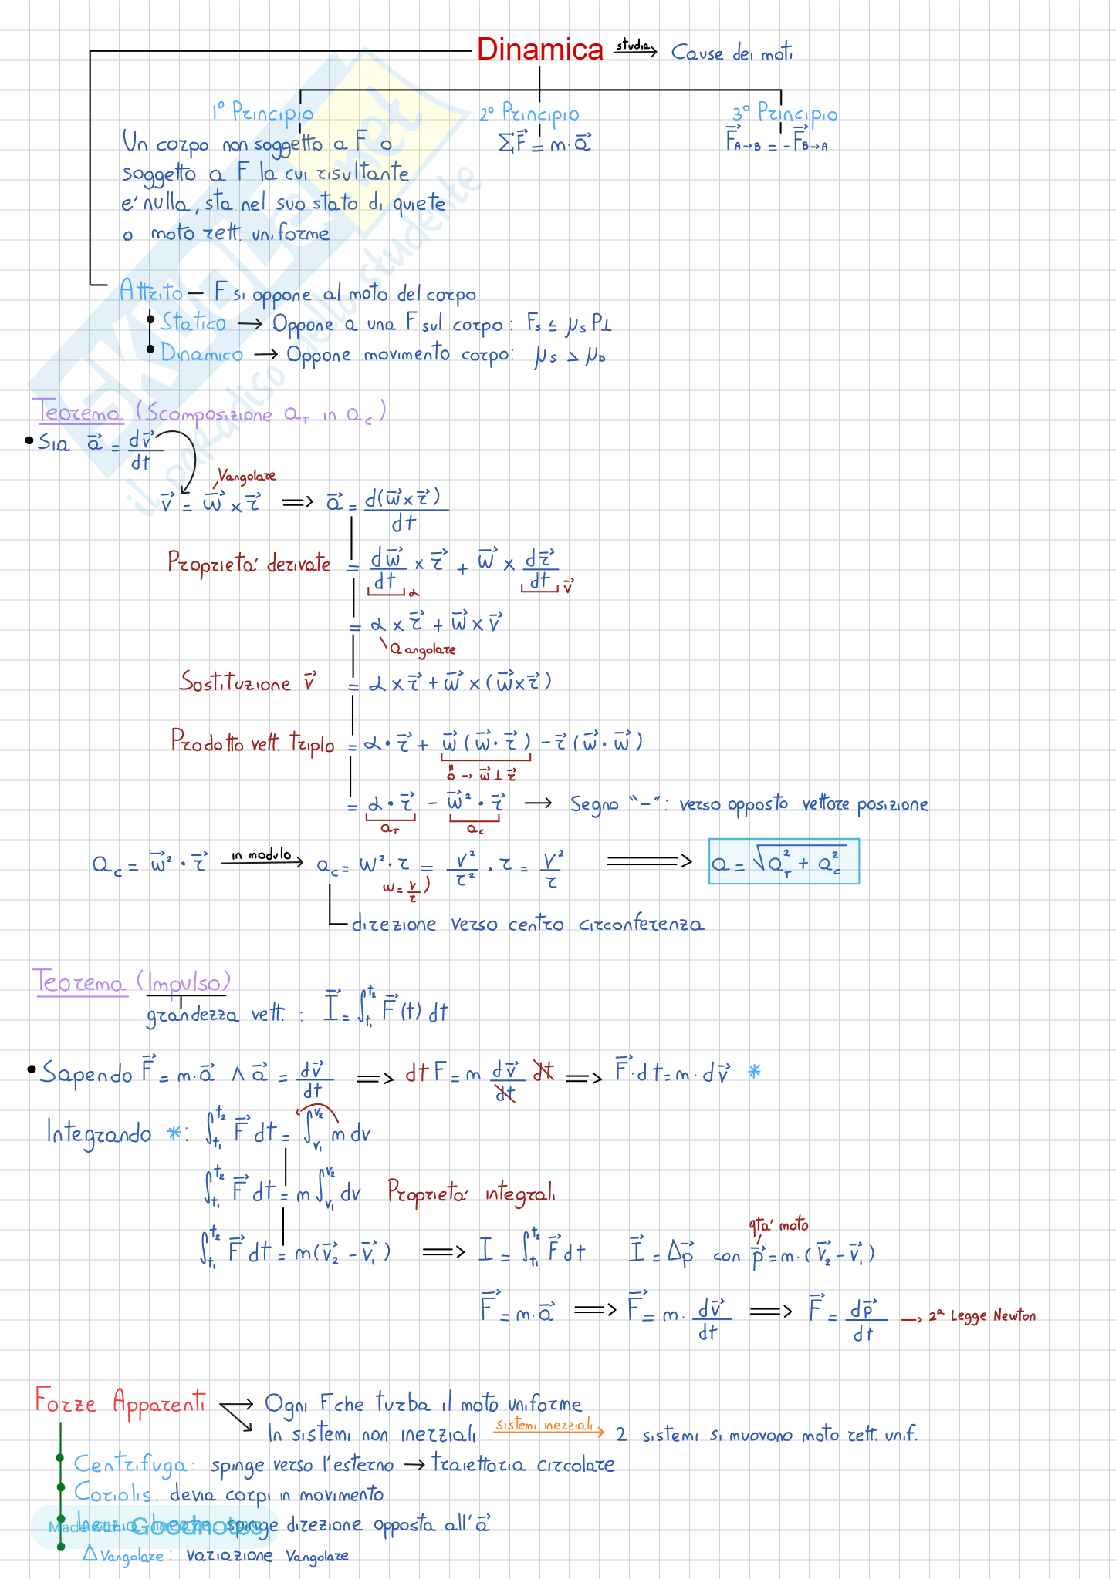 Dinamica studia → Cause dei moti
1° Principio 2° Principio 3° Principio
Un corpo non soggetto a F o
soggetto a F la cui risultante
e' nulla, sta nel suo stato di quiete
o moto rett. uniforme
ΣF⃗ = m·a⃗
F⃗A→B = -F⃗B→A
Attrito — F si oppone al moto del corpo
Statico → Oppone a una F sul corpo: Fs ≤ μs P⊥
Dinamico → Oppone movimento corpo: μs > μD
Teorema (Scomposizione aT in ac)
• Sia a⃗ = dv⃗/dt
Vangolare
v⃗ = w⃗ × r⃗ ⟹ a⃗ = d(w⃗×r⃗)/dt
Proprieta' derivate = dw⃗/dt × r⃗ + w⃗ × dr⃗/dt
α v⃗
= α × r⃗ + w⃗ × v⃗
a angolare
Sostituzione v⃗ = α × r⃗ + w⃗ × (w⃗×r⃗)
Prodotto vett. triplo = α · r⃗ + w⃗ (w⃗ · r⃗) - r⃗ (w⃗ · w⃗)
0 → w⃗ ⊥ r⃗
= α · r⃗ - w⃗² · r⃗ → Segno "-": verso opposto vettore posizione
aT ac
ac = w⃗² · r⃗ in modulo → ac = w² · r = v²/r² · r = v²/r ⟹ a = √(aT² + ac²)
w = v/r)
direzione verso centro circonferenza
Teorema (Impulso)
grandezza vett.: I⃗ = ∫t₁^t₂ F⃗(t) dt
• Sapendo F⃗ = m·a⃗ ∧ a⃗ = dv⃗/dt ⟹ dt F = m dv⃗/dt dt ⟹ F⃗·dt = m·dv⃗ *
Integrando *: ∫t₁^t₂ F⃗ dt = ∫v₁^v₂ m dv
∫t₁^t₂ F⃗ dt = m ∫v₁^v₂ dv Proprieta' integrali
qta' moto
∫t₁^t₂ F⃗ dt = m(v⃗₂ - v⃗₁) ⟹ I = ∫t₁^t₂ F⃗ dt I⃗ = Δp⃗ con p⃗ = m·(v⃗₂ - v⃗₁)
F⃗ = m·a⃗ ⟹ F⃗ = m· dv⃗/dt ⟹ F⃗ = dp⃗/dt → 2ª Legge Newton
Forze Apparenti → Ogni F che turba il moto uniforme
In sistemi non inerziali sistemi inerziali → 2 sistemi si muovono moto rett. unif.
Centrifuga: spinge verso l'esterno → traiettoria circolare
Coriolis: devia corpi in movimento
spinge direzione opposta all'a⃗
Made with Goodnotes
Δ Vangolare: variazione Vangolare
SKUOLA.net
il paradiso dello studente